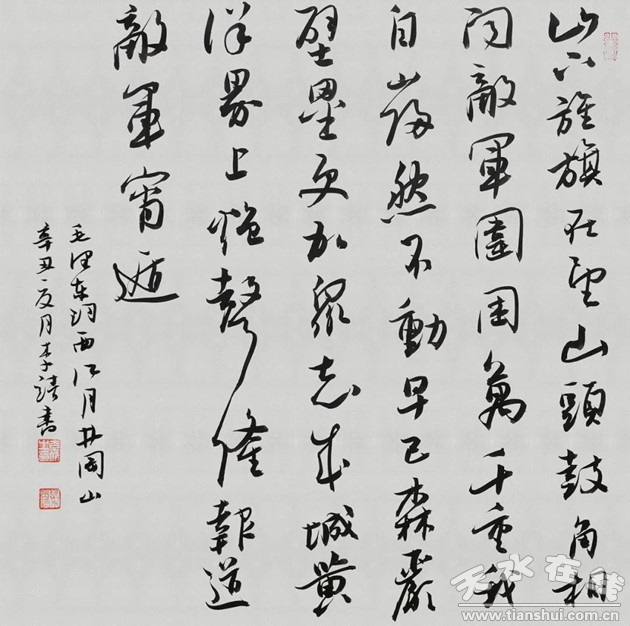 山下旌旗在望山頭鼓角相
闻敵軍圍困萬千重我
自岿然不動早已森嚴
壁壘更加衆志成城黄
洋界上炮聲隆報道
敵軍宵遁
毛泽东词西江月井岡山
辛丑夏月李書
天水在线
www.tianshui.com.cn